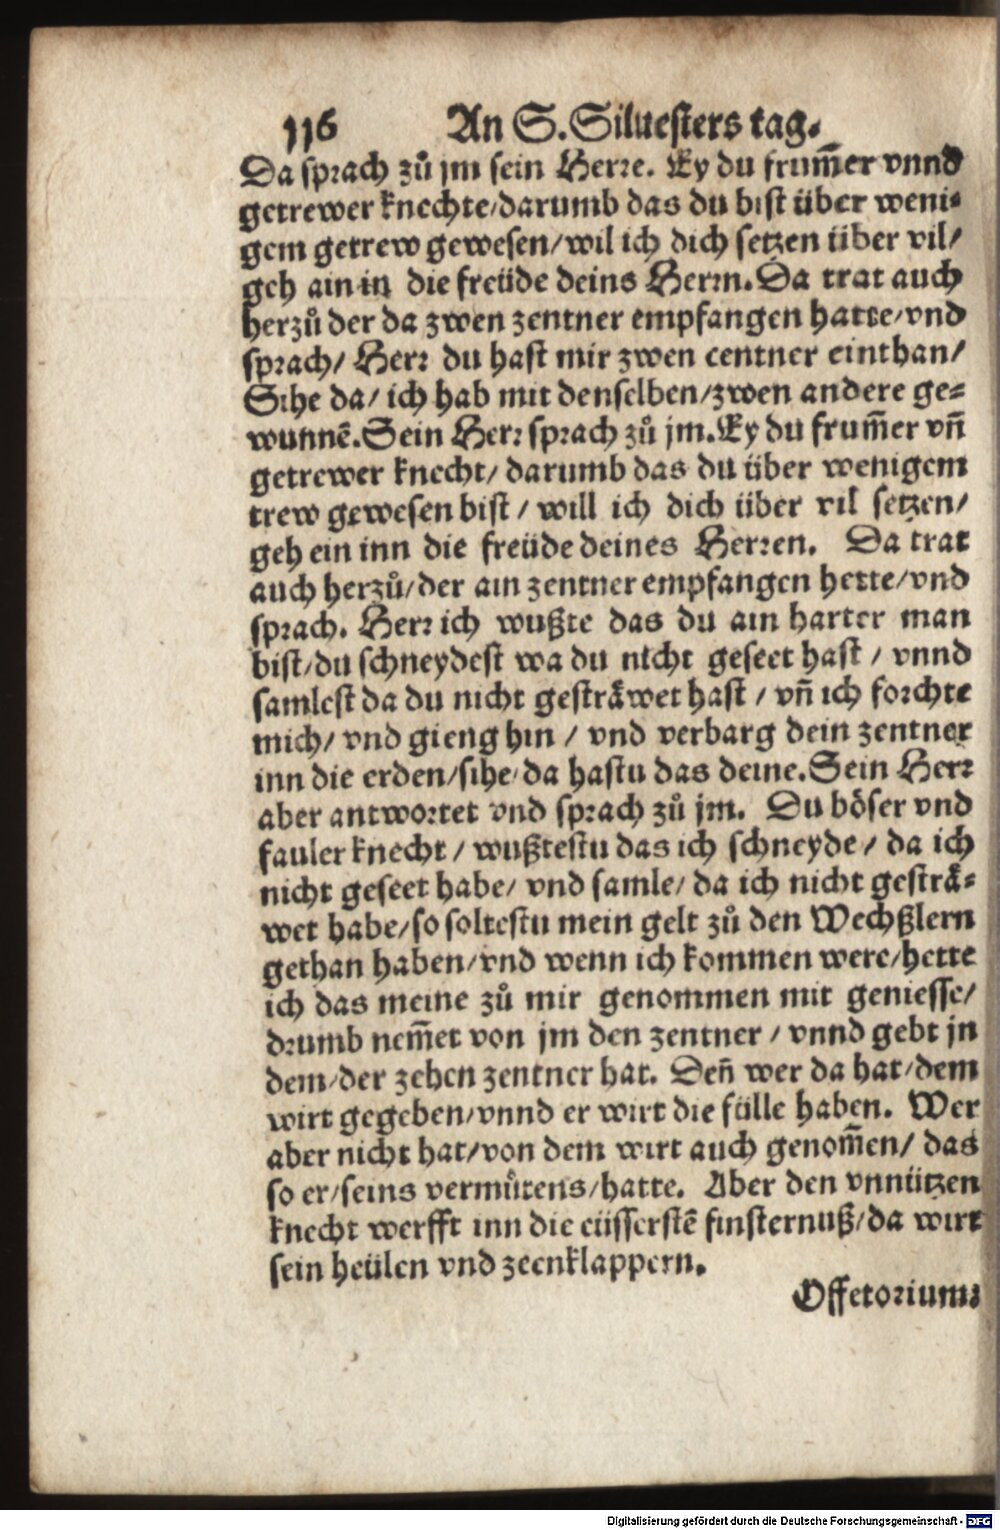 116 An S. Siluesters tag.
Da sprach zuͦ jm sein Herre. Ey du frum̃er vnnd
getrewer knechte/darumb das du bist über weni⸗
gem getrew gewesen/wil ich dich setzen über vil/
geh ain in die freüde deins Herrn. Da trat auch
herzuͦ der da zwen zentner empfangen hatte/vnd
sprach/ Herr du hast mir zwen centner einthan/
Sihe da/ ich hab mit denselben/zwen andere ge⸗
wunnē. Sein Herr sprach zuͦ jm. Ey du frum̃er vñ
getrewer knecht/ darumb das du über wenigem
trew gewesen bist / will ich dich über vil setzen/
geh ein inn die freüde deines Herren. Da trat
auch herzuͦ/der ain zentner empfangen hette/vnd
sprach. Herr ich wußte das du ain harter man
bist/du schneydest wa du nicht geseet hast / vnnd
samlest da du nicht gesträwet hast / vñ ich forchte
mich/ vnd gieng hin / vnd verbarg dein zentner
inn die erden/sihe/da hastu das deine. Sein Herr
aber antwortet vnd sprach zuͦ jm. Du böser vnd
fauler knecht / wußtestu das ich schneyde / da ich
nicht geseet habe/ vnd samle/ da ich nicht gesträ⸗
wet habe/so soltestu mein gelt zuͦ den Wechßlern
gethan haben/vnd wenn ich kommen were/hette
ich das meine zuͦ mir genommen mit geniesse/
drumb nem̃et von jm den zentner / vnnd gebt jn
dem/der zehen zentner hat. Deñ wer da hat/dem
wirt gegeben/vnnd er wirt die fülle haben. Wer
aber nicht hat/von dem wirt auch genom̃en/ das
so er/seins vermuͤtens/hatte. Aber den vnnützen
knecht werfft inn die eüsserstē finsternuß/da wirt
sein heülen vnd zeenklappern.
Offetorium
Digitalisierung gefördert durch die Deutsche Forschungsgemeinschaft - DFG